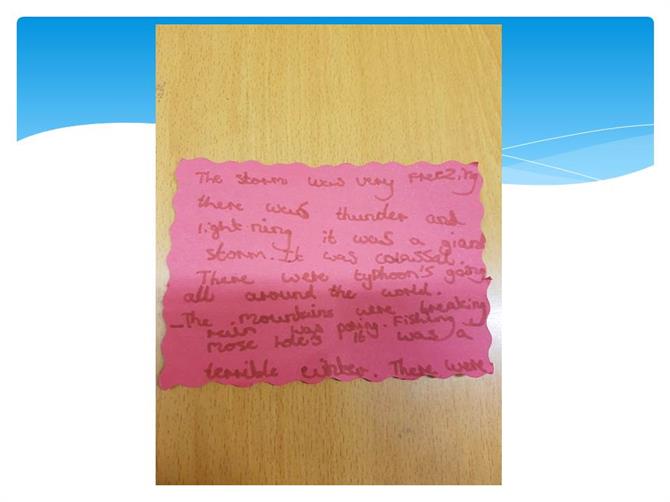 The storm was very FreeZing
there was thunder and
light ning it was a giant
storm. It was colassal.
There were typhoon's going
all around the world.
The mountains were breaking
rain was poring. Fishing
hole's It was a
terrible There were